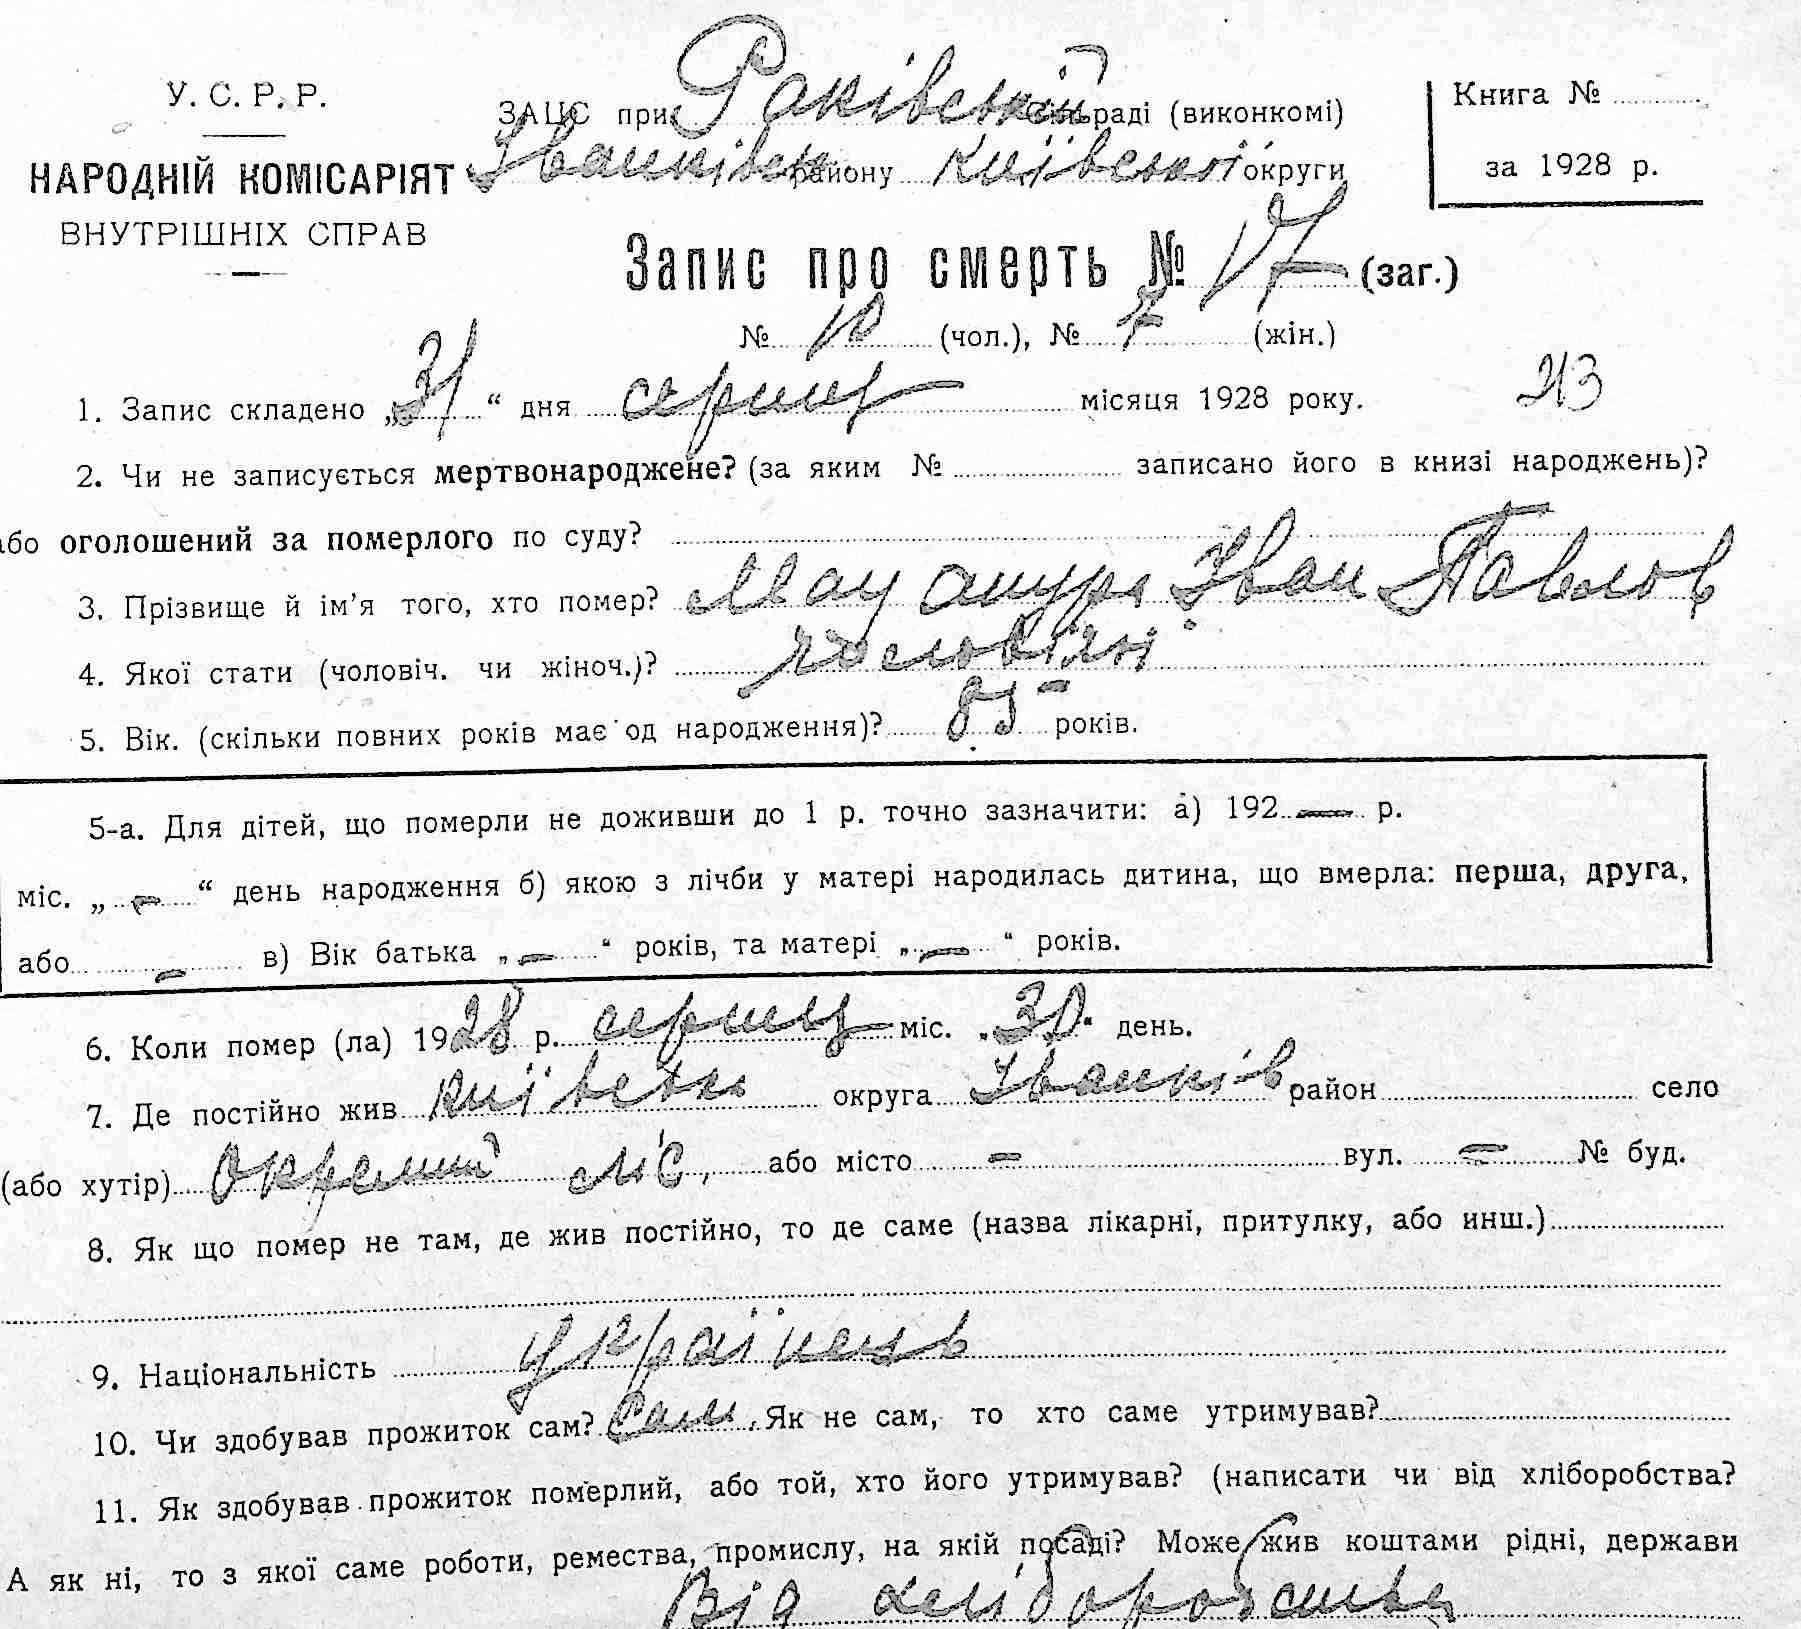 У. С. Р. Р.
НАРОДНІЙ КОМІСАРІЯТ
ВНУТРІШНІХ СПРАВ
ЗАЦС при Раківській сільраді (виконкомі)
Іванківськ району Київської округи
Книга №
за 1928 р.
Запис про смерть № 17 (заг.)
№ 10 (чол.), № 7 (жін.)
1. Запис складено „31“ дня серпня місяця 1928 року.
2. Чи не записується мертвонароджене? (за яким № записано його в книзі народжень)?
або оголошений за померлого по суду?
3. Прізвище й ім’я того, хто помер? Іван Павлов
4. Якої стати (чоловіч. чи жіноч.)? чоловічої
5. Вік. (скільки повних років має од народження)? 85 років.
5-а. Для дітей, що померли не доживши до 1 р. точно зазначити: а) 192 — р.
міс. „ – “ день народження б) якою з лічби у матері народилась дитина, що вмерла: перша, друга,
або – в) Вік батька „ – “ років, та матері „ – “ років.
6. Коли помер (ла) 1928 р. серпня міс. „30“ день.
7. Де постійно жив Київська округа Іванків район село
(або хутір) Окремий або місто – вул. – № буд.
8. Як що помер не там, де жив постійно, то де саме (назва лікарні, притулку, або инш.)
9. Національність українець
10. Чи здобував прожиток сам? Сам. Як не сам, то хто саме утримував?
11. Як здобував прожиток померлий, або той, хто його утримував? (написати чи від хліборобства?
А як ні, то з якої саме роботи, ремества, промислу, на якій посаді? Може жив коштами рідні, держави
Від хліборобства